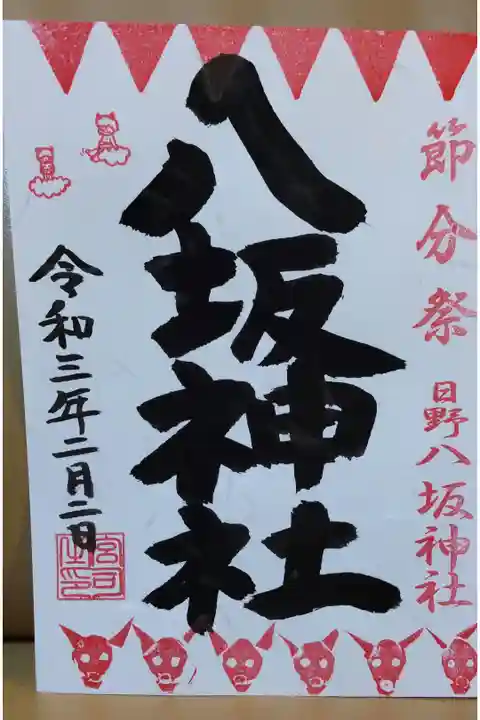 節分祭 日野八坂神社
八坂神社
令和三年二月二日